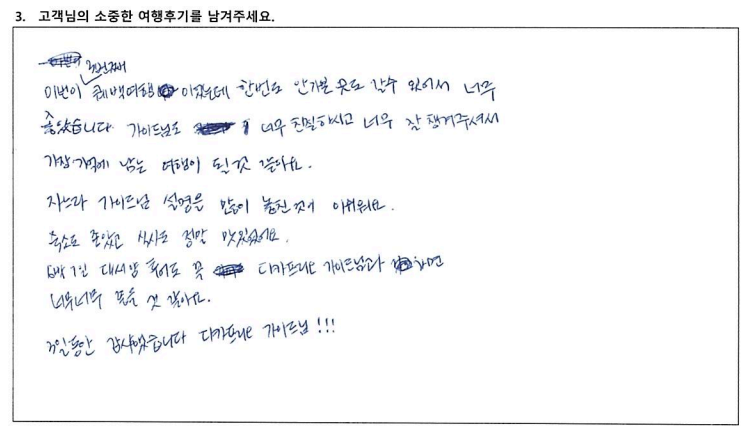 3. 고객님의 소중한 여행후기를 남겨주세요.
3번째
이번이 퀘백여행 이었는데 한번도 안가본 곳도 갈수 있어서 너무
좋았습니다. 가이드님도 너무 친절하시고 너무 잘 챙겨주셔서
가장 기억에 남는 여행이 될것 같아요.
자느라 가이드님 설명을 많이 놓친것이 아쉬워요.
숙소도 좋았고 식사도 정말 맛있었어요.
6박7일 대서양 투어도 꼭 디카프리오 가이드님과 하면
너무너무 좋을 것 같아요.
3일동안 감사했습니다 디카프리오 가이드님!!!